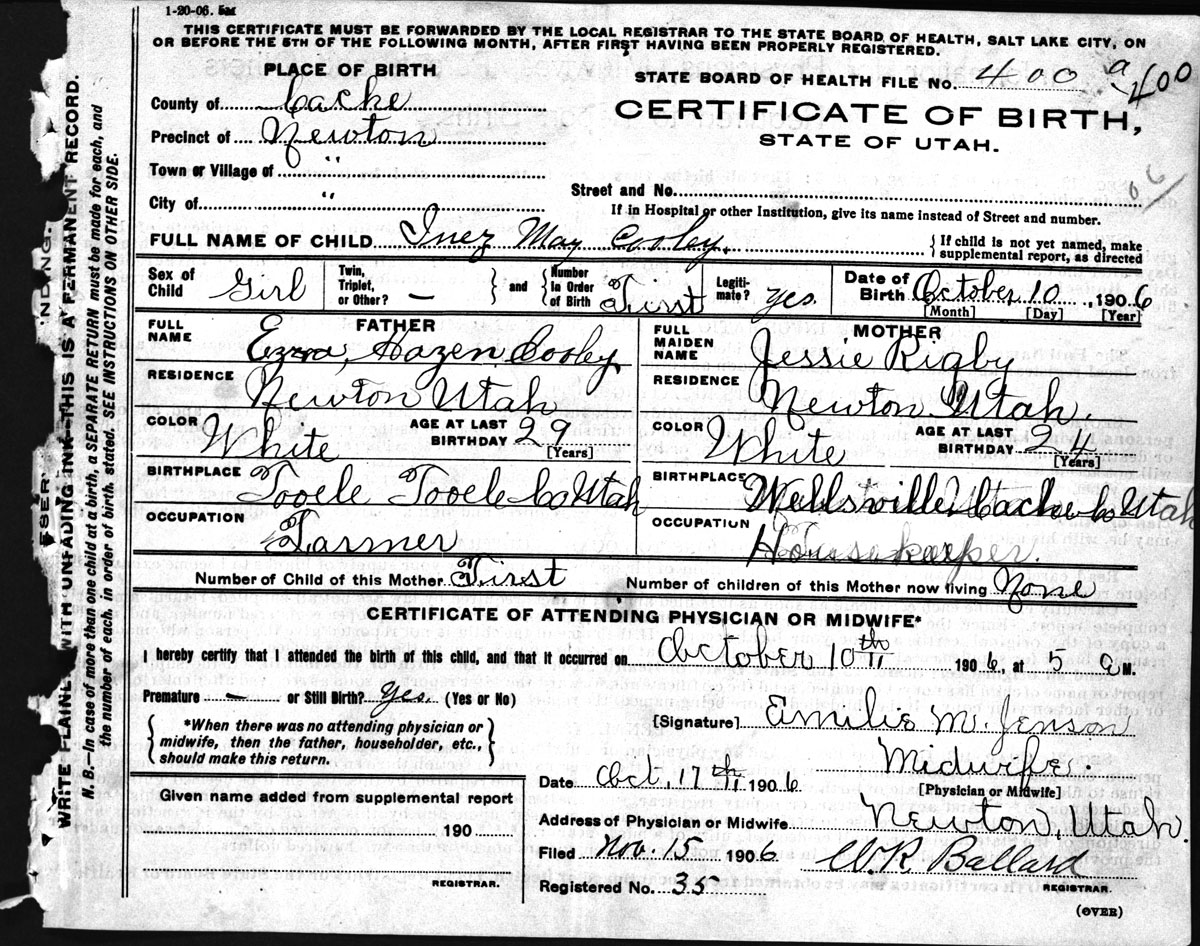 1-20-06. 5M
THIS CERTIFICATE MUST BE FORWARDED BY THE LOCAL REGISTRAR TO THE STATE BOARD OF HEALTH, SALT LAKE CITY, ON
OR BEFORE THE 5TH OF THE FOLLOWING MONTH, AFTER FIRST HAVING BEEN PROPERLY REGISTERED.
PLACE OF BIRTH
County of Cache
Precinct of Newton
Town or Village of "
City of "
STATE BOARD OF HEALTH FILE No. 400 a 400
CERTIFICATE OF BIRTH,
STATE OF UTAH.
06
Street and No.
If in Hospital or other Institution, give its name instead of Street and number.
FULL NAME OF CHILD Inez May Cooley. { If child is not yet named, make
supplemental report, as directed
Sex of Child Girl
Twin, Triplet, or Other? — } and { Number in Order of Birth First
Legitimate? yes.
Date of Birth October 10, 1906
[Month] [Day] [Year]
FATHER
FULL NAME Ezra Hazen Cooley
RESIDENCE Newton Utah
COLOR White AGE AT LAST BIRTHDAY 29 [Years]
BIRTHPLACE Tooele Tooele Co Utah
OCCUPATION Farmer
MOTHER
FULL MAIDEN NAME Jessie Rigby
RESIDENCE Newton Utah.
COLOR White AGE AT LAST BIRTHDAY 24 [Years]
BIRTHPLACE Wellsville, Cache Co Utah
OCCUPATION Housekeeper.
Number of Child of this Mother First Number of children of this Mother now living None
CERTIFICATE OF ATTENDING PHYSICIAN OR MIDWIFE*
I hereby certify that I attended the birth of this child, and that it occurred on October 10th 1906, at 5 a M.
Premature — or Still Birth? Yes. (Yes or No)
{ *When there was no attending physician or
midwife, then the father, householder, etc.,
should make this return. }
[Signature] Emilie M. Jenson
Midwife.
[Physician or Midwife]
Date Oct. 17th 1906
Address of Physician or Midwife Newton, Utah.
Given name added from supplemental report
190
REGISTRAR.
Filed Nov. 15 1906 W.R. Ballard
REGISTRAR.
Registered No. 35
(OVER)
WRITE PLAINLY WITH UNFADING INK—THIS IS A PERMANENT RECORD.
N. B.—In case of more than one child at a birth, a SEPARATE RETURN must be made for each, and
the number of each, in order of birth, stated. SEE INSTRUCTIONS ON OTHER SIDE.